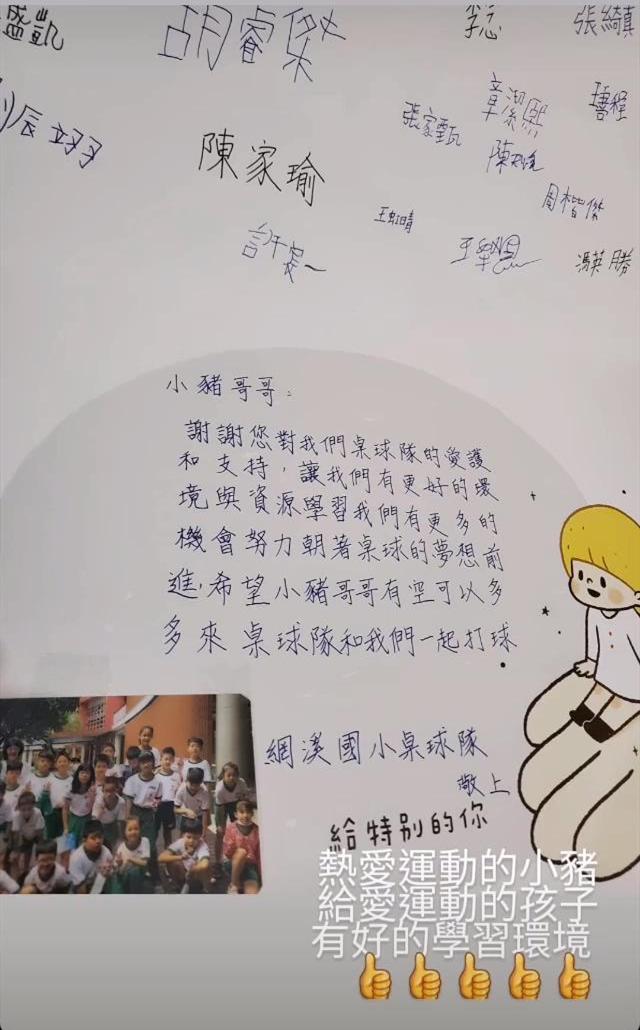 盛凱
胡睿傑
張綺真
辰羽
陳家瑜
張家甄
章潔熙
周楷傑
王虹晴
馮英勝
小豬哥哥:
謝謝您對我們桌球隊的愛護
和支持，讓我們有更好的環
境與資源學習我們有更多的
機會努力朝著桌球的夢想前
進,希望小豬哥哥有空可以多
多來桌球隊和我們一起打球
網溪國小桌球隊
敬上
給特別的你
熱愛運動的小豬
給愛運動的孩子
有好的學習環境
👍👍👍👍👍